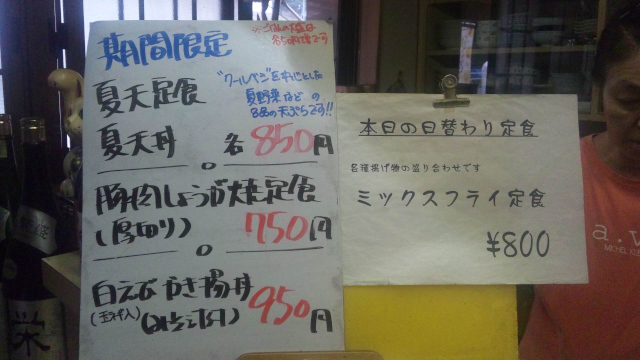 期間限定
夏天定食
"クールベジ"を中心とした
夏野菜などの
8品の天ぷらです!!
夏天丼 各850円
豚肉しょうが焼定食
(厚切り) 750円
白えびかき揚丼
(玉ネギ入) 950円
本日の日替わり定食
各種揚げ物の盛り合わせです
ミックスフライ定食
¥800
栄
a.v